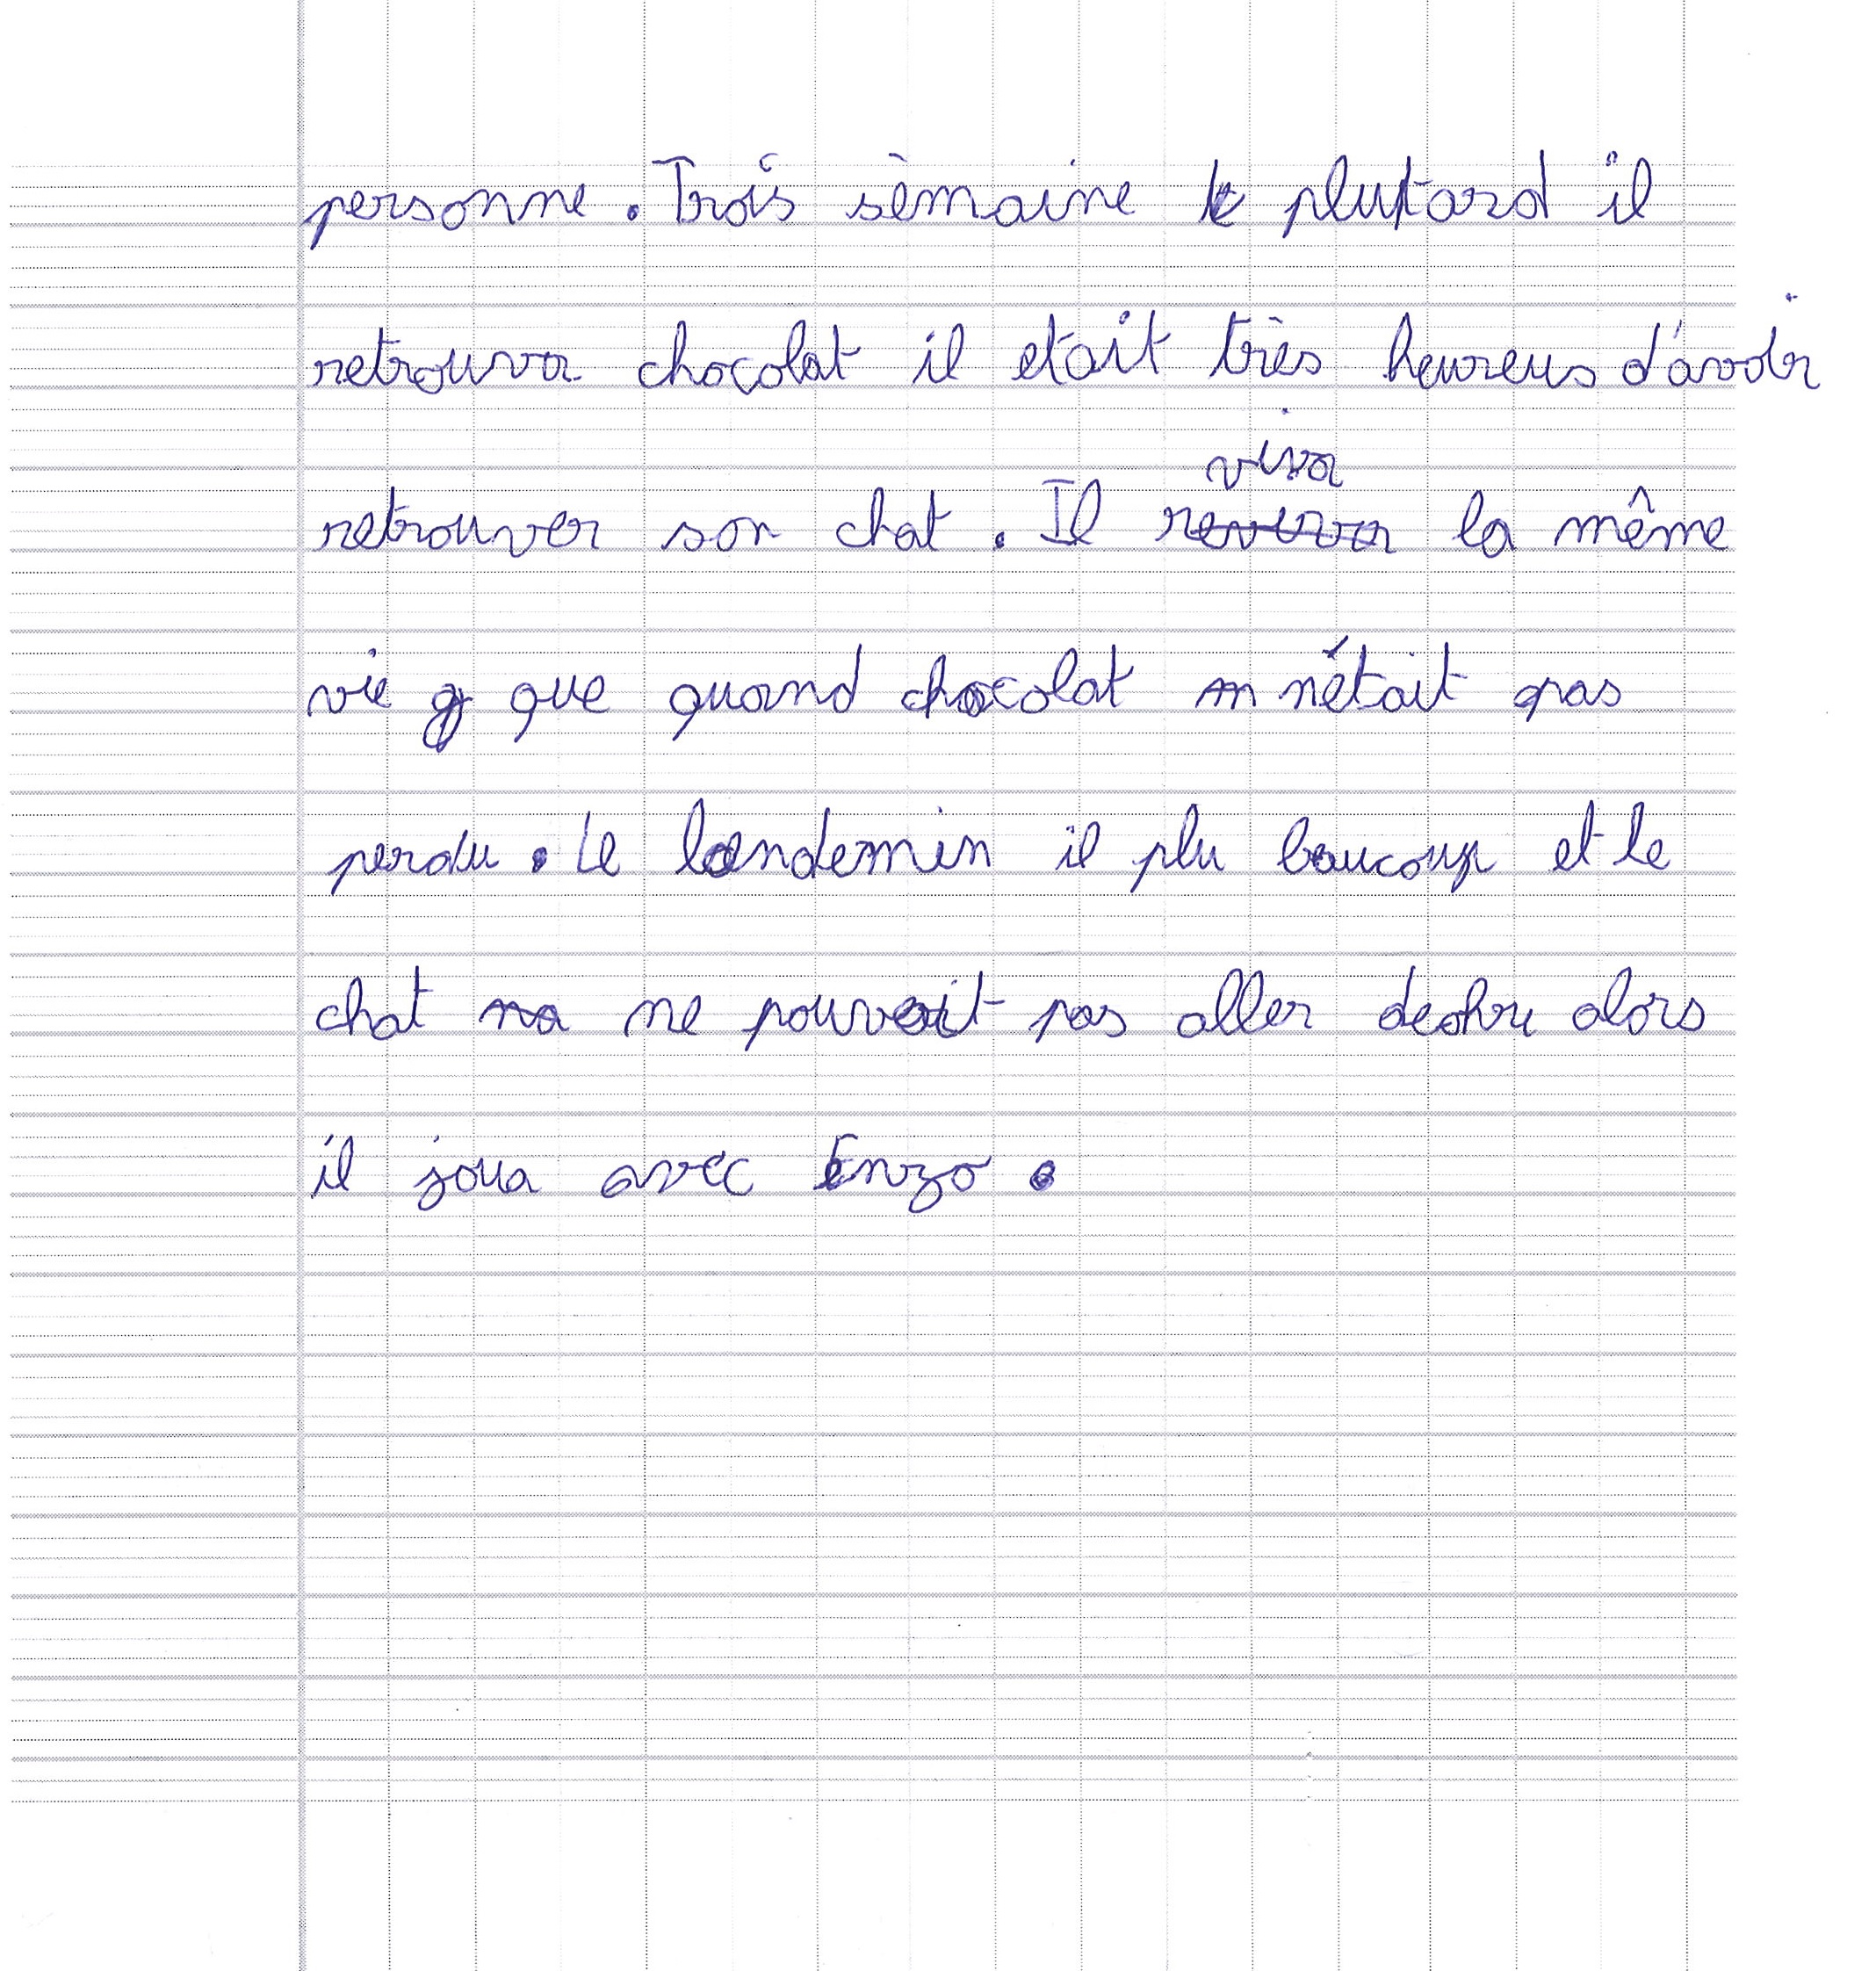 personne. Trois sèmaine plutard il
retrouva chocolat il etait très heureus d'avoir
retrouver son chat. Il viva la même
vie que quand chocolat n'était pas
perdu. Le lendemin il plu baucoup et le
chat ne pouvait pas aller deohre alors
il joua avec Enzo.